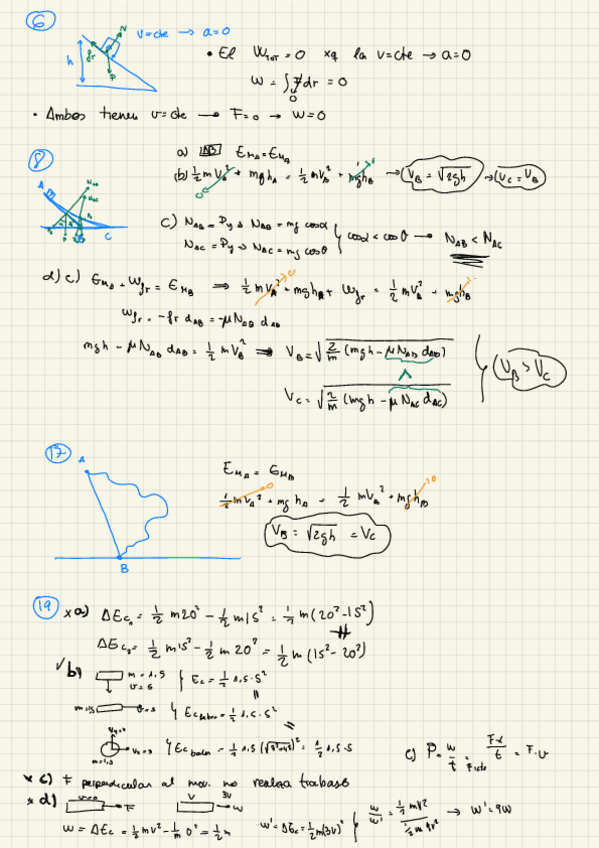 6
v=cte → a=0
N
fr
h
P
• El W_TOT = 0 xq la v=cte → a=0
W = ∫ F dr = 0
0
• Ambos tienen v=cte → F=0 → W=0
8
A
C
a) E_MA = E_MB
(b) ½ m V_A² + mgh_A = ½ m V_B² + mgh_B → V_B = √2gh → V_C = V_B
c) N_AB = Py → N_AB = mg cos α
N_AC = Py → N_AC = mg cos θ } cos α < cos θ → N_AB < N_AC
d) c) E_MA + W_fr = E_MB ⇒ ½ m V_A² + mgh_A + W_fr = ½ m V_B² + mgh_B
W_fr = -fr d_AB = -μ N_AB d_AB
mgh - μ N_AB d_AB = ½ m V_B² ⇒ V_B = √(2/m (mgh - μ N_AB d_AB))
Λ
V_C = √(2/m (mgh - μ N_AC d_AC))
V_B > V_C
17
A
B
E_MA = E_MB
½ m V_A² + mg h_A = ½ m V_B² + mg h_B
V_B = √2gh = V_C
19
x a) ΔEc = ½ m 20² - ½ m 15² = ½ m (20² - 15²)
ΔEc = ½ m 15² - ½ m 20² = ½ m (15² - 20²)
✓ b) m = 1,5
v = 5 { Ec = ½ 1,5 · 5²
e) P = W/t = F·x/t = F·v
x c) F perpendicular al mov. no realiza trabajo
x d) v=0 → F
V 3V → W
W = ΔEc = ½ m v² - ½ m 0² = ½ m
W' = ΔEc = ½ m (3V)²
→ W' = 9W